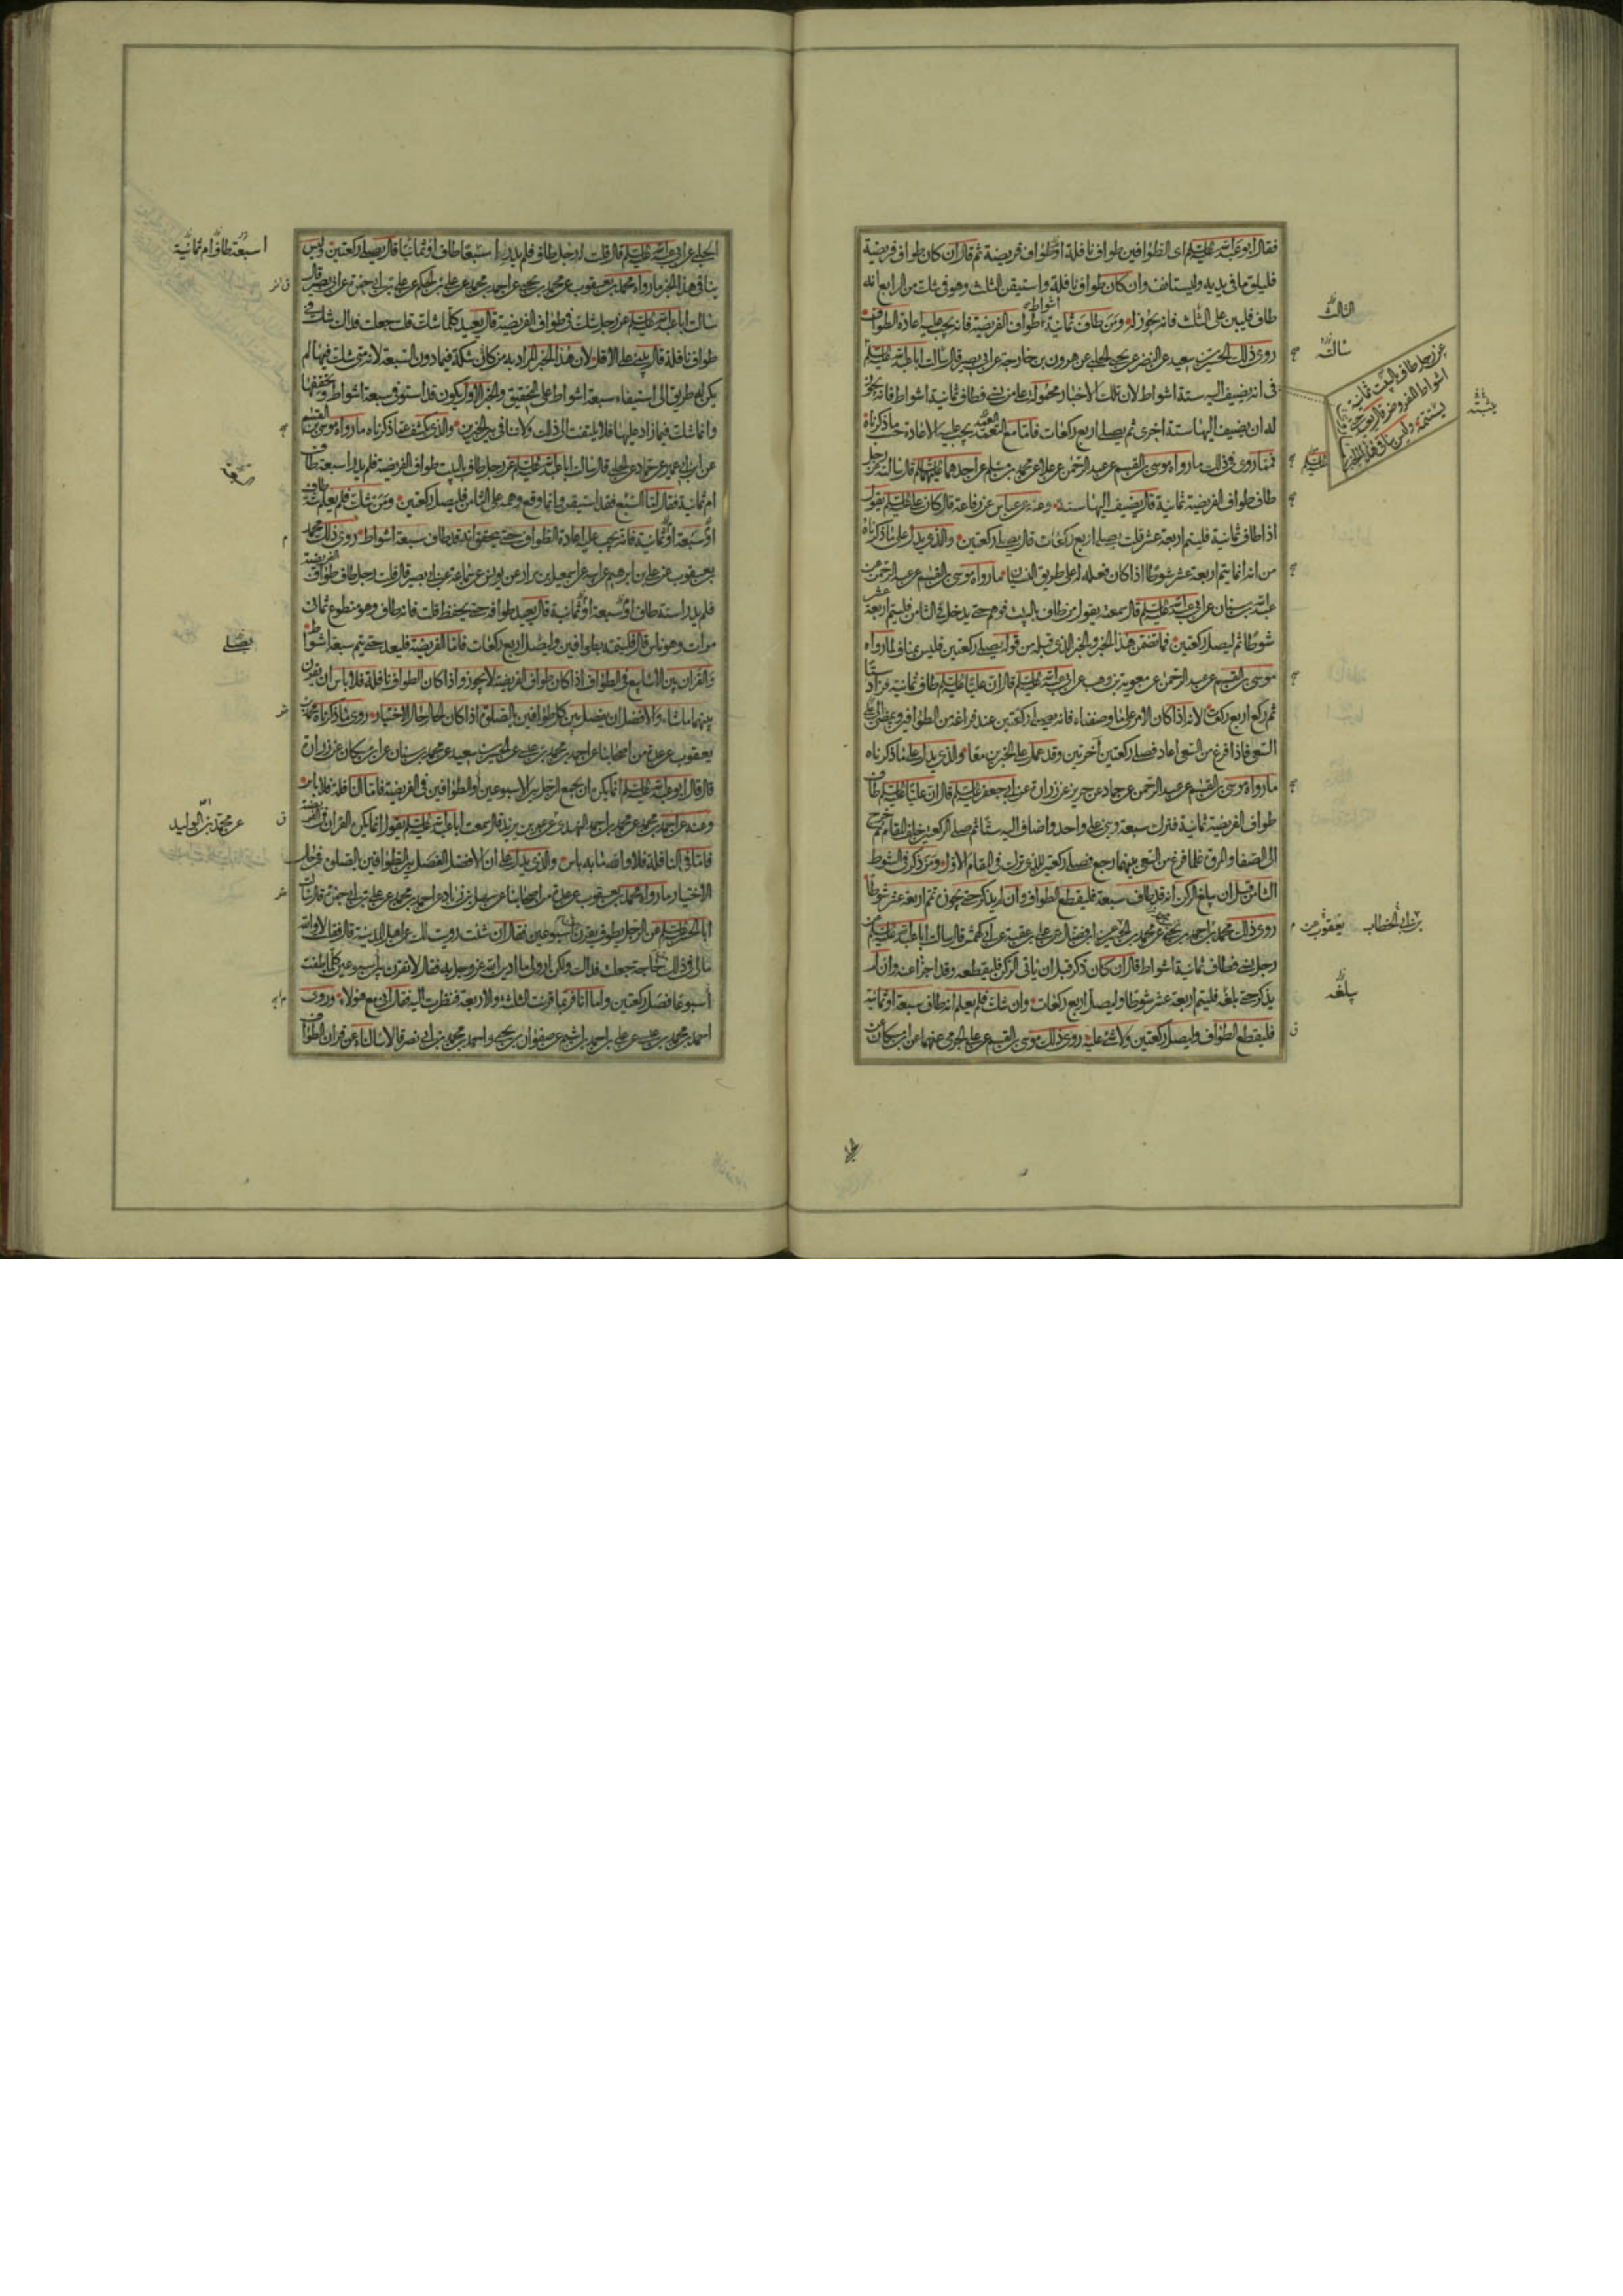 فقال ابو عبد الله عليه السلم اى الطوافين طواف نافلة او طواف فريضة ثم قال ان كان طواف فريضة
فليلق ما فى يديه وليستانف وان كان طواف نافلة واستيقن الثلث وهو فى شك من الرابع انه
طاف فليبن على الثلث فانه يجوز له ومن طاف ثمانية اشواط طواف الفريضة فانه يجب عليه اعادة الطواف
روى ذلك الحسين بن سعيد عن النضر عن يحيى الحلبى عن هرون بن خارجة عن ابى بصير قال سالت ابا عبد الله عليه السلم
فى انه يضيف اليه ستة اشواط لان تلك الاخبار محمولة على من نسى فطاف ثمانية اشواط فانه يجوز
له ان يضيف اليها ستة اخرى ثم يصلى اربع ركعات فاما مع التعمد يجب عليه الاعادة حسب ما ذكرناه
فمما روى فى ذلك ما رواه موسى بن القسم عن عبد الرحمن عن علا عن محمد بن مسلم عن احدهما عليهما السلم قال سالته عن رجل
طاف طواف الفريضة ثمانية قال يضيف اليها ستة وعنه عن عباس عن رفاعة قال كان على عليه السلم يقول
اذا طاف ثمانية فليتم اربعة عشر قلت يصلى اربع ركعات قال يصلى ركعتين والذى يدل على ما ذكرناه
من انه انما يتم اربعة عشر شوطا اذا كان فعله على طريق النسيان ما رواه موسى بن القسم عن عبد الرحمن عن
عبد الله بن سنان عن ابى عبد الله عليه السلم قال سمعته يقول من طاف بالبيت فوهم حتى يدخل فى الثامن فليتم اربعة عشر
شوطا ثم ليصل ركعتين فما تضمن هذا الخبر والخبر الذى قبله من قوله يصلى ركعتين فليس بمناف لما رواه
موسى بن القسم عن عبد الرحمن عن معوية بن وهب عن ابى عبد الله عليه السلم قال ان عليا عليه السلم طاف ثمانية فزاد ستا
ثم ركع اربع ركعات لانه اذا كان الامر على ما وصفناه فانه يصلى ركعتين عند فراغه من الطوافين ويمضى الى
السعى فاذا فرغ من السعى اعاد فصلى ركعتين اخرتين وقد عمل على الخبرين معا والذى يدل على ما ذكرناه
ما رواه موسى بن القسم عن عبد الرحمن عن حماد عن حريز عن زرارة عن ابى جعفر عليه السلم قال ان عليا عليه السلم طاف
طواف الفريضة ثمانية فترك سبعة وبنى على واحد واضاف اليه ستا ثم صلى الركعتين خلف المقام ثم خرج
الى الصفا والمروة فلما فرغ من السعى بينهما رجع فصلى ركعتين للذى ترك فى المقام الاول ومن ذكر فى الشوط
الثامن قبل ان يبلغ الركن انه قد طاف سبعة فليقطع الطواف وان لم يذكر حتى يجوزه تمم اربعة عشر شوطا
روى ذلك محمد بن احمد بن يحيى عن محمد بن الحسين عن ابن فضال عن على بن عقبة عن ابى كهمش قال سالت ابا عبد الله عليه السلم عن
رجل نسى فطاف ثمانية اشواط قال ان كان ذكر قبل ان ياتى الركن فليقطعه وقد اجزا عنه وان لم
يذكر حتى بلغه فليتم اربعة عشر شوطا وليصل اربع ركعات وان شك فلم يعلم انه طاف سبعة او ثمانية
فليقطع الطواف وليصل ركعتين ولا شئ عليه روى ذلك موسى بن القسم عن على الجرمى عنهما عن ابن مسكان عن
الثالث
سالته
عن رجل طاف بالبيت ثمانية
اشواط المفروض قال يعيد حتى
يستتمه وليس ينافى هذا الخبر
يثبته
عليه السلم
بن ابى الخطاب
يعقوب عن
بلغه
الحلبى عن ابى عبد الله عليه السلم قال قلت له رجل طاف فلم يدر اسبعا طاف او ثمانيا قال يصلى ركعتين وليس
ينافى هذا الخبر ما رواه محمد بن يعقوب عن محمد بن يحيى عن احمد بن محمد عن على بن الحكم عن على بن ابى حمزة عن ابى بصير قال
سالت ابا عبد الله عليه السلم عن رجل شك فى طواف الفريضة قال يعيد كلما شك قلت جعلت فداك شك فى
طواف نافلة قال يبنى على الاقل لان هذا الخبر المراد به من كان شكه فيما دون السبعة لانه متى شك فيها لم
يكن له طريق الى استيفاء سبعة اشواط على التحقيق والخبر الاول يكون قد استوفى سبعة اشواط وتحققها
وانما شك فيما زاد عليها فلا يلتفت الى ذلك ولا تنافى بين الخبرين والذى يكشف عما ذكرناه ما رواه موسى بن القسم
عن ابن ابى عمير عن حماد عن الحلبى قال سالت ابا عبد الله عليه السلم عن رجل طاف بالبيت طواف الفريضة فلم يدر اسبعة طاف
ام ثمانية فقال اما السبع فقد استيقن وانما وقع وهمه على الثامن فليصل ركعتين ومن شك فلم يعلم ستة طاف
او سبعة او ثمانية فانه يجب عليه اعادة الطواف حتى يتحقق انه قد طاف سبعة اشواط روى ذلك محمد
بن يعقوب عن على بن ابرهيم عن ابيه عن اسمعيل بن مرار عن يونس عن سماعة عن ابى بصير قال قلت رجل طاف طواف الفريضة
فلم يدر استة طاف او سبعة او ثمانية قال يعيد طوافه حتى يحفظ قلت فانه طاف وهو متطوع ثمان
مرات وهو ناس قال فليتمه بطوافين وليصل اربع ركعات فاما الفريضة فليعد حتى يتم سبعة اشواط
والقران بين الاسابيع فى الطواف اذا كان طواف الفريضة لا يجوز واذا كان الطواف نافلة فلا باس ان يقرن
بينهما ما شاء والافضل ان يفصل بين كل طوافين بالصلوة اذا كان الحال حال الاختيار روى ما ذكرناه محمد بن
يعقوب عن عدة من اصحابنا عن احمد بن محمد بن عيسى عن الحسين بن سعيد عن محمد بن سنان عن ابن مسكان عن زرارة
قال قال ابو عبد الله عليه السلم انما يكره ان يجمع الرجل بين الاسبوعين والطوافين فى الفريضة فاما النافلة فلا باس
وعنه عن احمد بن محمد عن محمد بن احمد النهدى عن عمر بن يزيد قال سمعت ابا عبد الله عليه السلم يقول انما يكره القران فى الفريضة
فاما فى النافلة فلا والله ما به باس والذى يدل على ان الافضل الفصل بين الطوافين بالصلوة فى حال
الاختيار ما رواه محمد بن يعقوب عن عدة من اصحابنا عن سهل بن زياد عن احمد بن محمد عن على بن ابى حمزة قال سالت
ابا الحسن عليه السلم عن الرجل يطوف يقرن بين اسبوعين فقال ان شئت رويت لك عن اهل المدينة قال فقلت لا والله
مالى فى ذلك حاجة جعلت فداك ولكن ارو لى ما ادين الله عز وجل به فقال لا تقرن بين اسبوعين كلما طفت
اسبوعا فصل ركعتين واما انا فربما قرنت الثلثة والاربعة فنظرت اليه فقال انى مع هؤلاء وروى
احمد بن محمد بن عيسى عن على بن احمد بن اشيم عن صفوان بن يحيى واحمد بن محمد بن ابى نصر قالا سالناه عن قران الطواف
اسبعة طاف ام ثمانية
يصلى
عن محمد بن الوليد